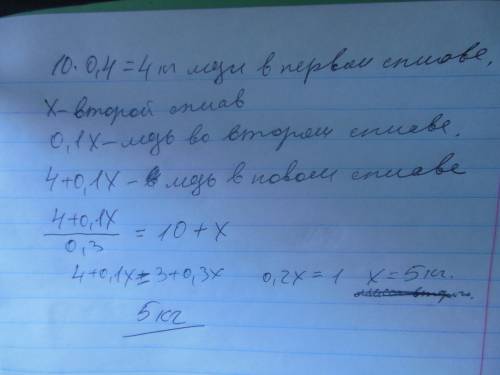 10·0,4=4кг меди в первом сплаве,
х-второй сплав
0,1х-медь во втором сплаве.
4+0,1х-медь в новом сплаве
4+0,1х
0,3
=10+х
4+0,1х=3+0,3х 0,2х=1 х=5кг.
5кг